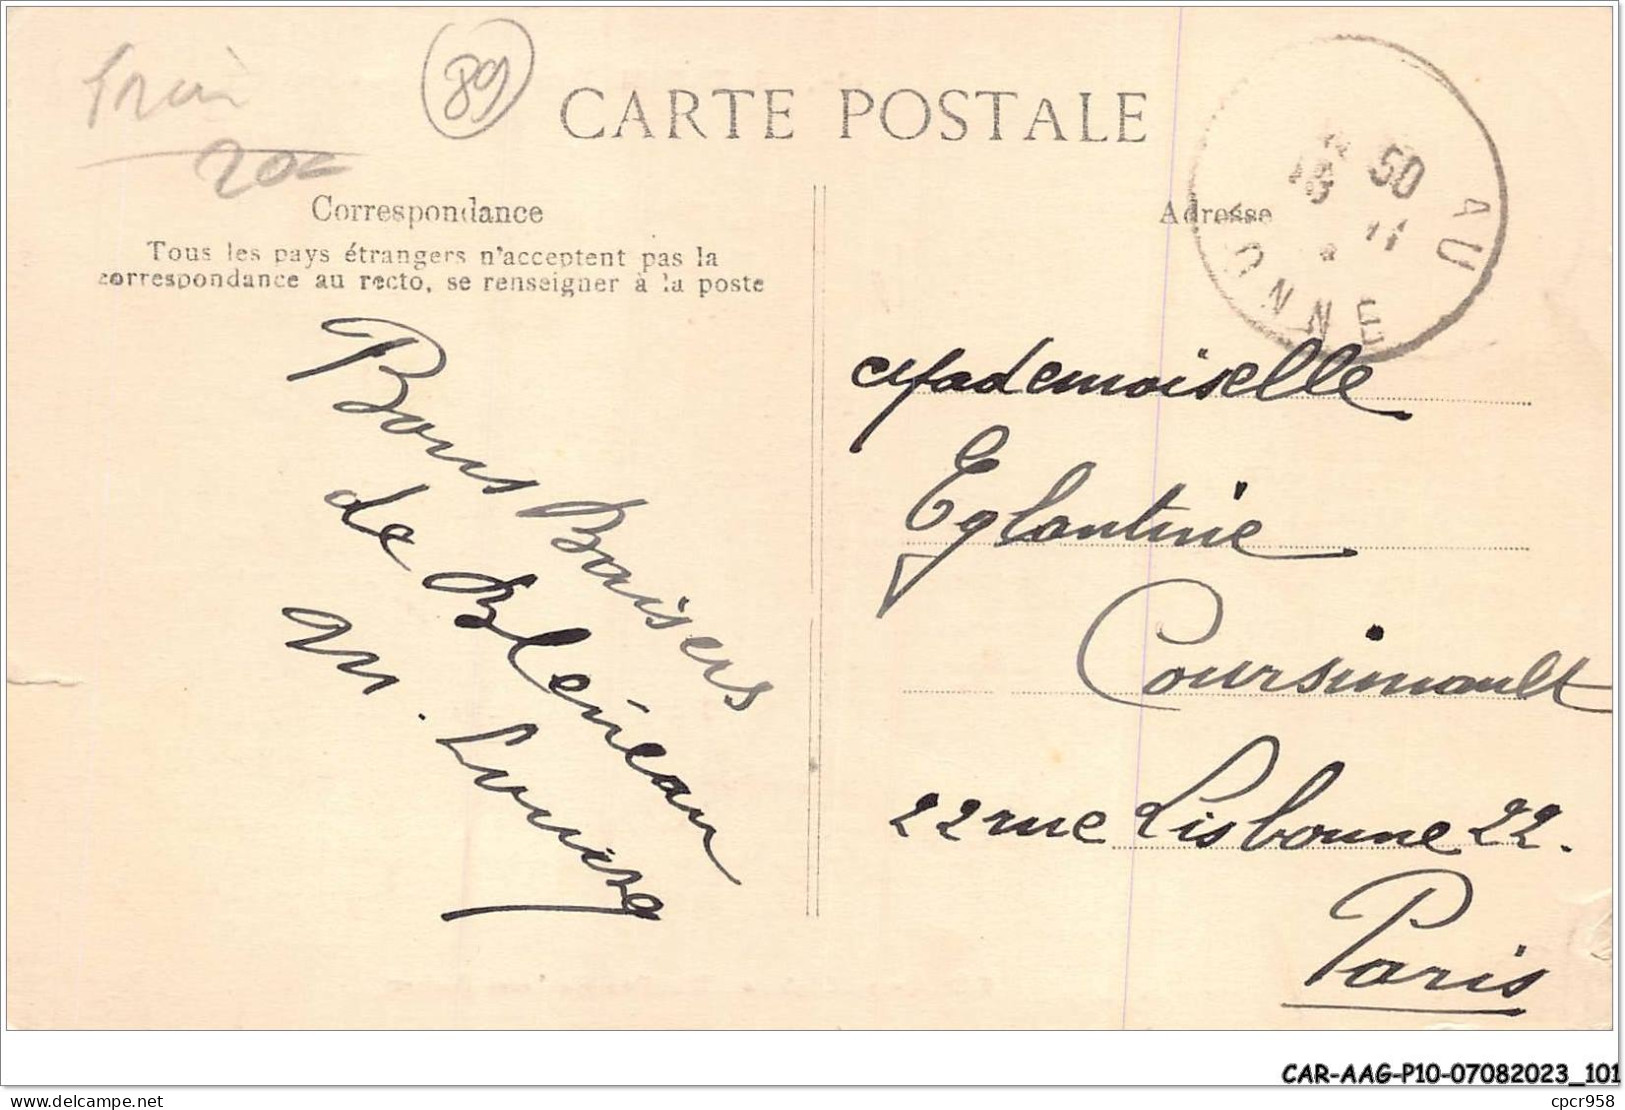 89
20€
CARTE POSTALE
Correspondance
Tous les pays étrangers n'acceptent pas la
correspondance au recto, se renseigner à la poste
Adresse
50
11
AU
YONNE
Bons Baisers
de Bléneau
M. Louise
Mademoiselle
Eglantine
Coursimault
22 rue Lisbonne 22.
Paris
CAR-AAG-P10-07082023_101
cpcr958